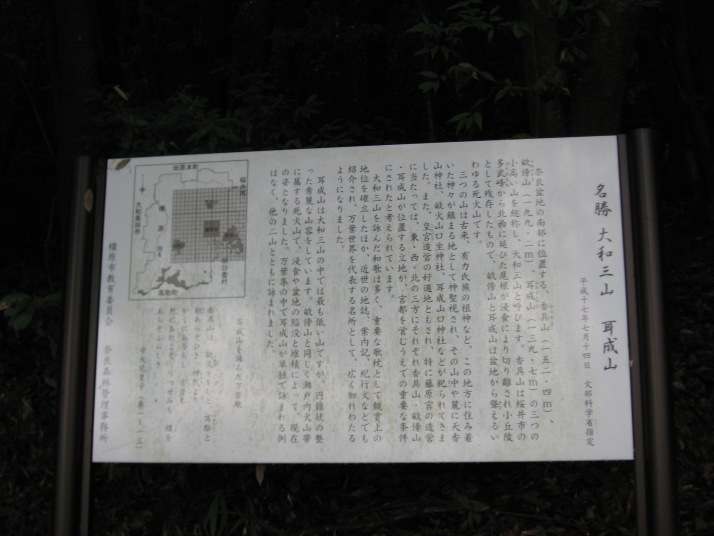 名勝 大和三山 耳成山
平成十七年七月十四日 文部科学省指定
奈良盆地の南部に位置する、香具山(一五二・四m)、
畝傍山(一九九・二m)、耳成山(一三九・七m)の三つの
小高い山を総称し、大和三山と呼びます。香具山は桜井市の
多武峰から北西に延びた尾根が浸食により切り離され小丘陵
として残存したもので、畝傍山と耳成山は盆地から聳えるい
わゆる死火山です。
三つの山は古来、有力氏族の祖神など、この地方に住み着
いた神々が鎮まる地として神聖視され、その山中や麓に天香
山神社、畝火山口坐神社、耳成山口神社などが祀られてきま
した。また、皇宮造営の好適地ともされ、特に藤原宮の造営
に当たっては、東・西・北の三方にそれぞれ香具山・畝傍山
・耳成山が位置する立地が、宮都を営むうえでの重要な条件
にされたと考えられています。
大和三山を詠んだ和歌は多く、重要な歌枕として観賞上の
地位を確立したほか、近世の地誌、案内記、紀行文などでも
紹介され、万葉世界を代表する名所として、広く知れわたる
ようになりました。
耳成山は大和三山の中では最も低い山ですが、円錐状の整
った秀麗な山容をしています。畝傍山と同じく瀬戸内火山帯
に属する死火山で、浸食や盆地の陥没と堆積によって、現在
の姿となりました。万葉集の中で耳成山が単独で詠まれる例
はなく、他の二山とともに詠まれました。
耳成山を詠った万葉歌
香具山は 畝傍ををしと 耳梨と
中大兄皇子(巻一、一三)
橿原市教育委員会 奈良森林管理事務所
田原本町
桜井市
橿原市
大和高田市
明日香村
高取町